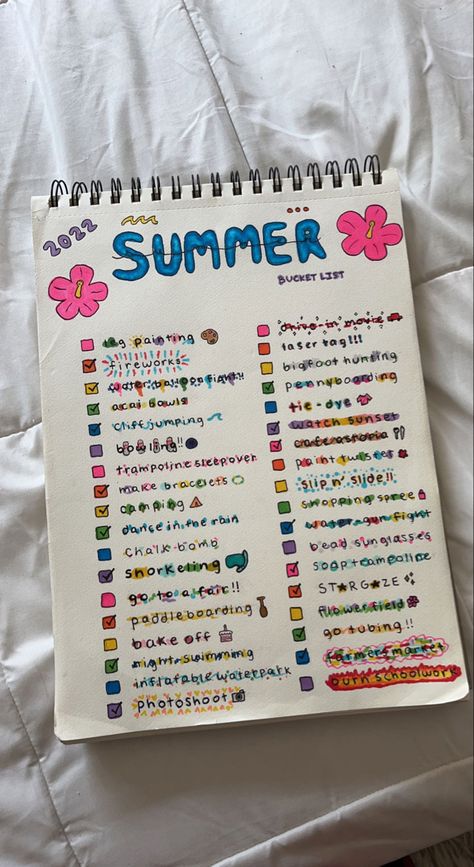 2022
SUMMER
BUCKET LIST
leg painting
fireworks
water balloon fight!!
acai bowls
cliff jumping
bowling!!
trampoline sleepover
make bracelets
camping
dance in the rain
chalk bomb
snorkeling
go to a fair!!
paddleboarding
bake off
night swimming
inflatable waterpark
photoshoot
drive-in movie
laser tag!!!
bigfoot hunting
pennyboarding
tie-dye
watch sunset
cafe astoria
paint twister
slip n' slide!!
shopping spree
water gun fight
bead sunglasses
soap trampoline
ST★RG★ZE
flower field
go tubing!!
farmers market
burn schoolwork